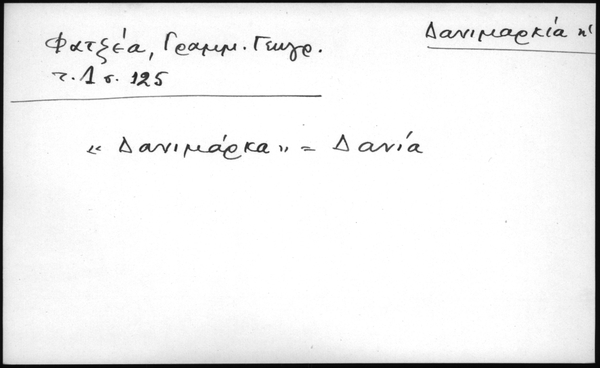 Δανιμαρκία ἡ
Φατζέα, Γραμμ. Γεωγρ.
τ. Α σ. 125
« Δανιμάρκα » = Δανία